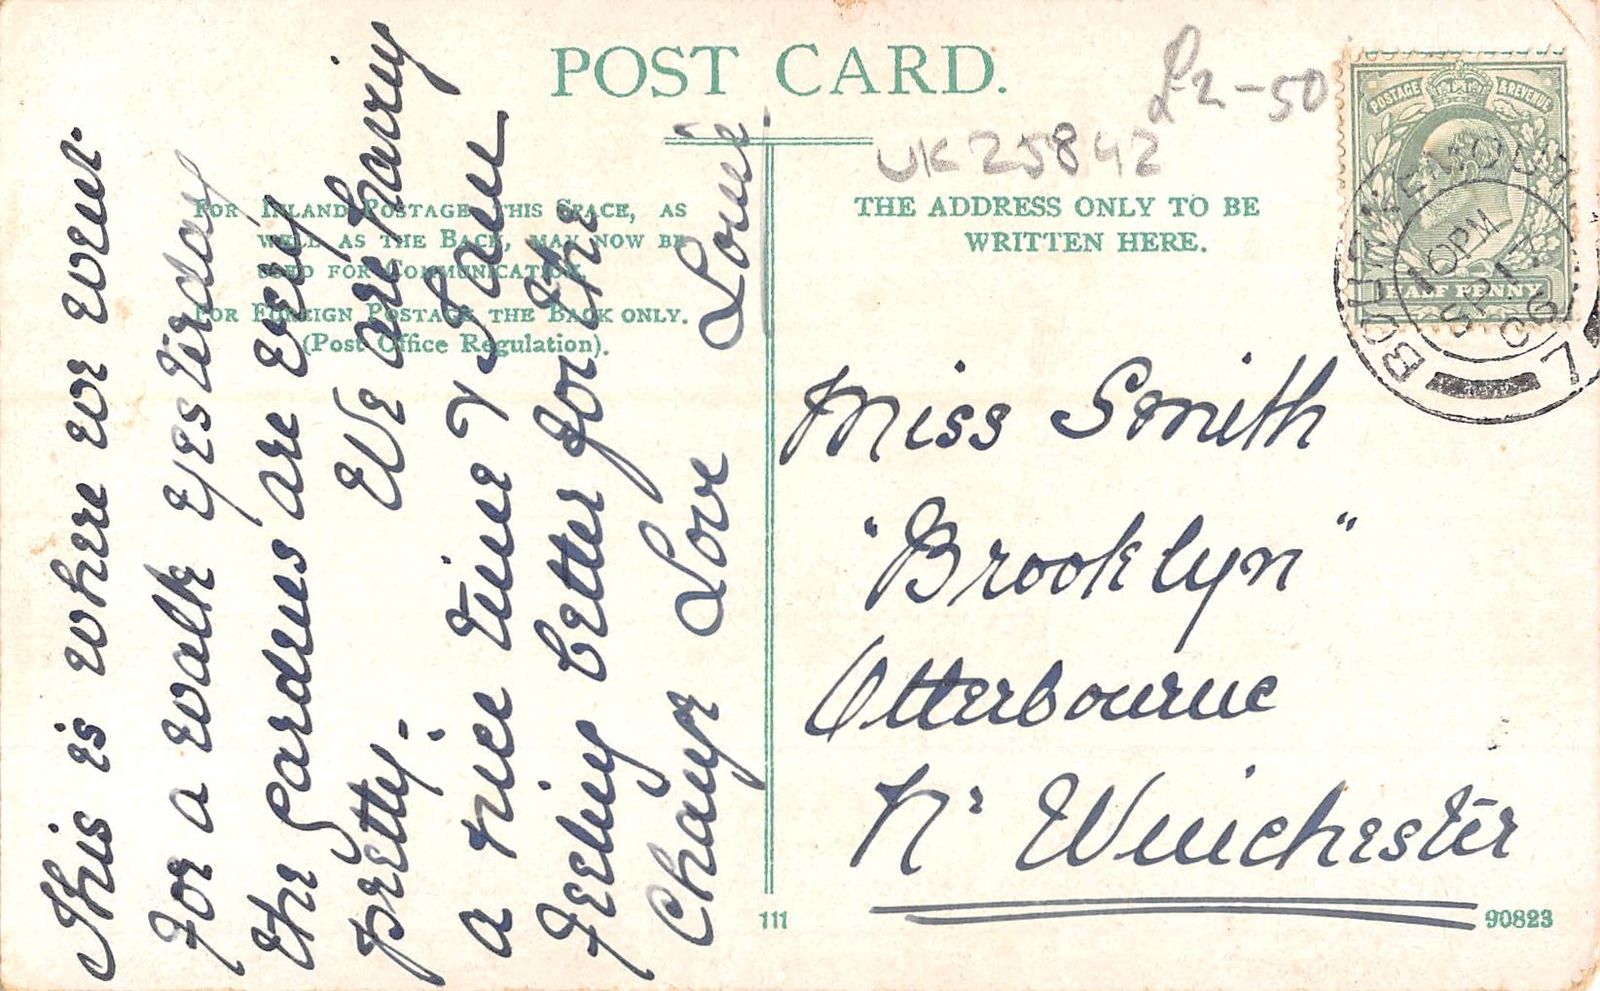 POST CARD.
£2-50
UK25842
POSTAGE & REVENUE
HALF PENNY
BOURNEMOUTH
10 PM
SP 12
06
7
FOR INLAND POSTAGE THIS SPACE, AS
WELL AS THE BACK, MAY NOW BE
USED FOR COMMUNICATION.
FOR FOREIGN POSTAGE THE BACK ONLY.
(Post Office Regulation).
THE ADDRESS ONLY TO BE
WRITTEN HERE.
This is where we went
for a walk yesterday
the gardens are very
pretty. We are having
a nice time & I am
feeling better for the
change Love Louie.
Miss Smith
"Brooklyn"
Otterbourne
Nr Winchester
111
90823